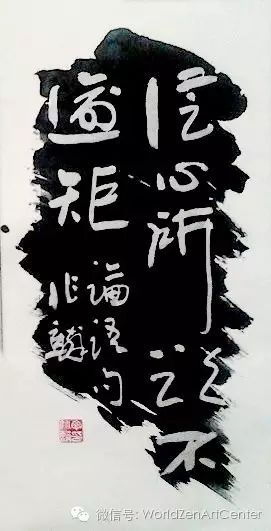 從心所欲不
逾矩
論語句
微信号: WorldZenArtCenter